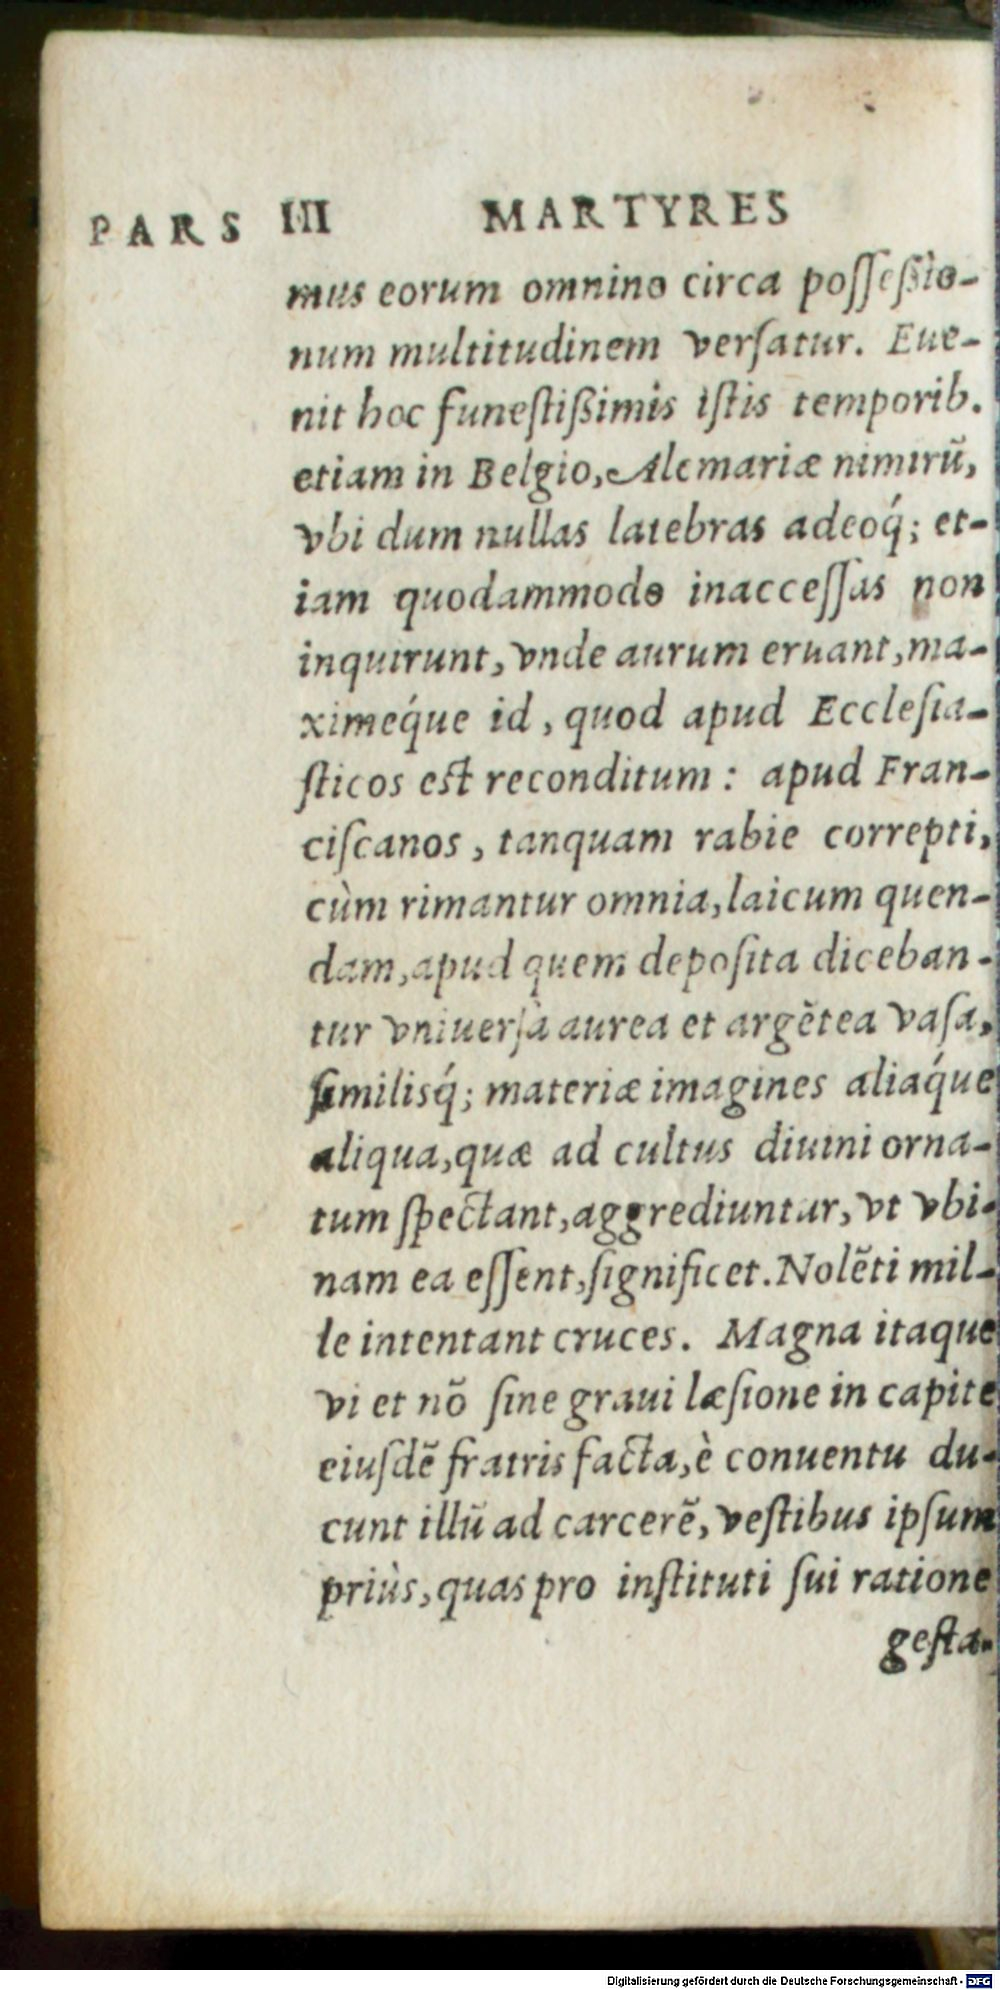 PARS III MARTYRES
mus eorum omnino circa poſſeßio-
num multitudinem verſatur. Eue-
nit hoc funeſtißimis iſtis temporib.
etiam in Belgio, Alcmariæ nimirũ,
vbi dum nullas latebras adeoq́; et-
iam quodammodo inacceſſas non
inquirunt, vnde aurum eruant, ma-
ximeq́ue id, quod apud Eccleſia-
ſticos eſt reconditum: apud Fran-
ciſcanos, tanquam rabie correpti,
cùm rimantur omnia, laicum quen-
dam, apud quem depoſita diceban-
tur vniuerſa aurea et argẽtea vaſa,
ſimilisq́; materiæ imagines aliaq́ue
aliqua, quæ ad cultus diuini orna-
tum ſpectant, aggrediuntur, vt vbi-
nam ea eſſent, ſignificet. Nolẽti mil-
le intentant cruces. Magna itaque
vi et nõ ſine graui læſione in capite
eiuſdẽ fratris facta, è conuentu du-
cunt illũ ad carcerẽ, veſtibus ipſum
priùs, quas pro inſtituti ſui ratione
geſta-
Digitalisierung gefördert durch die Deutsche Forschungsgemeinschaft - DFG